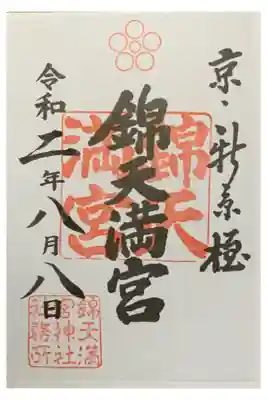 京・新京極
錦天満宮
令和二年八月八日
錦天
満宮
錦天満
宮神社
社務所